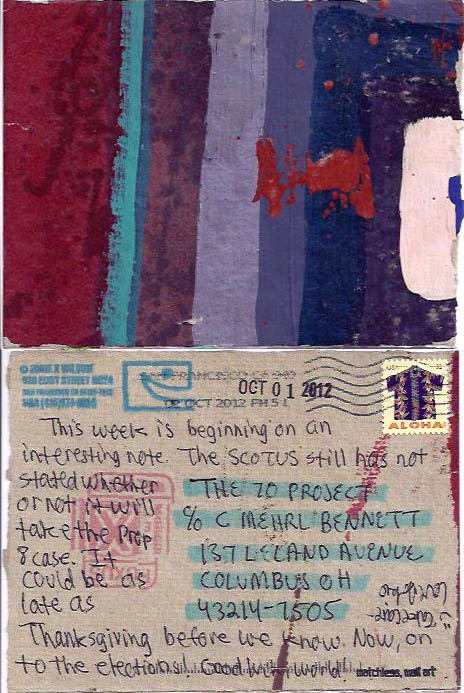 © JOHN X WILSON
920 EDDY STREET
USA
SAN FRANCISCO CA 940
02 OCT 2012 PM 5 L
OCT 01 2012
USA
ALOHA
This week is beginning on an
interesting note. The SCOTUS still has not
stated whether
or not it will
take the Prop
8 case. It
could be as
late as
Thanksgiving before we know. Now, on
to the elections! Good world!
THE 70 PROJECT
% C MEHRL BENNETT
137 LELAND AVENUE
COLUMBUS OH
43214-7505
matchless mail art